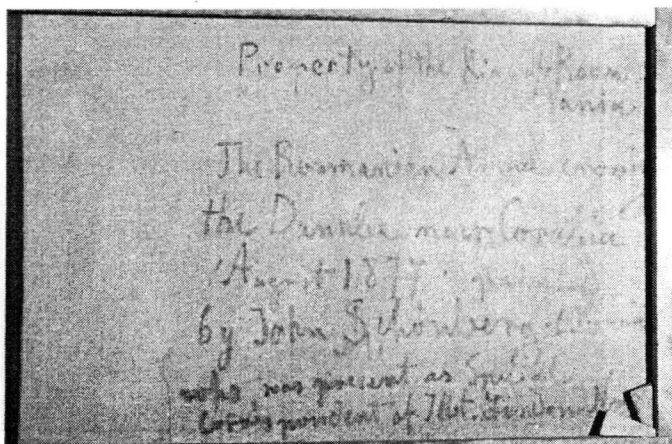 Property of the King of Roum
'ania
The Roumanian Army crossing
the Danube near Corabia
August 1877 painted
by John Schönberg
who was present as Special
Correspondent of Illst. London N